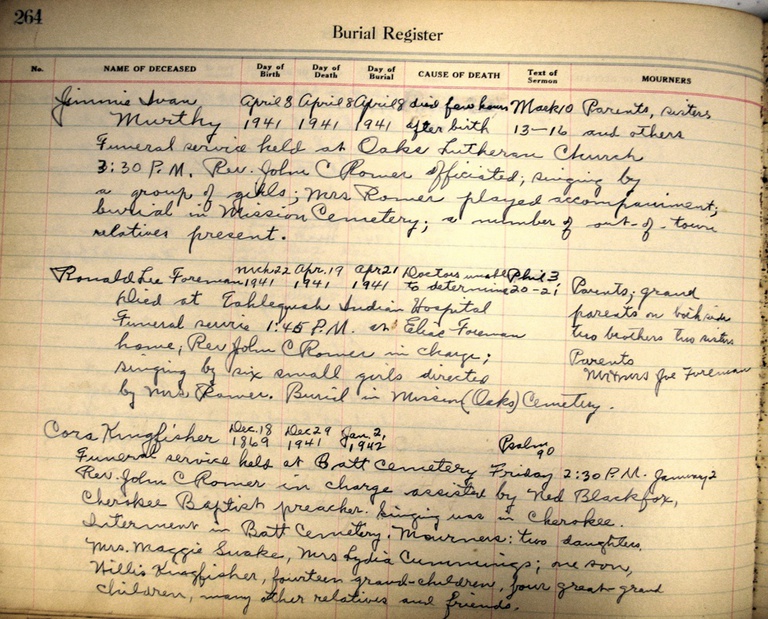 264
Burial Register
No. NAME OF DECEASED Day of Birth Day of Death Day of Burial CAUSE OF DEATH Text of Sermon MOURNERS
Jimmie Ivan April 8 April 8 April 8 died few hours Mark 10 Parents, sisters
Murthy 1941 1941 1941 after birth 13-16 and others
Funeral service held at Oaks Lutheran Church
3:30 P.M. Rev. John C Romer officiated; singing by
a group of girls; Mrs Romer played accompaniment;
burial in Mission Cemetery; a number of out-of-town
relatives present.
Ronald Lee Foreman Mch 22 Apr. 19 Apr 21 Doctors unable Phil 3 Parents; grand
1941 1941 1941 to determine 20-21 parents on both side
Died at Tahlequah Indian Hospital two brothers two sisters
Funeral servie 1:45 P.M. at Elsie Foreman Parents
home; Rev John C Romer in charge; Mr & Mrs Joe Foreman
singing by six small girls directed
by Mrs Romer. Burial in Mission (Oaks) Cemetery.
Cora Kingfisher Dec. 18 Dec 29 Jan. 2, Psalm
1869 1941 1942 90
Funeral service held at Batt Cemetery Friday 2:30 P.M. January 2
Rev. John C Romer in charge assisted by Ned Blackfox,
Cherokee Baptist preacher. Singing was in Cherokee.
Interment in Batt Cemetery. Mourners: two daughters,
Mrs. Maggie Snake, Mrs Lydia Cummings; one son,
Willis Kingfisher, fourteen grand-children, four great-grand
children, many other relatives and friends.